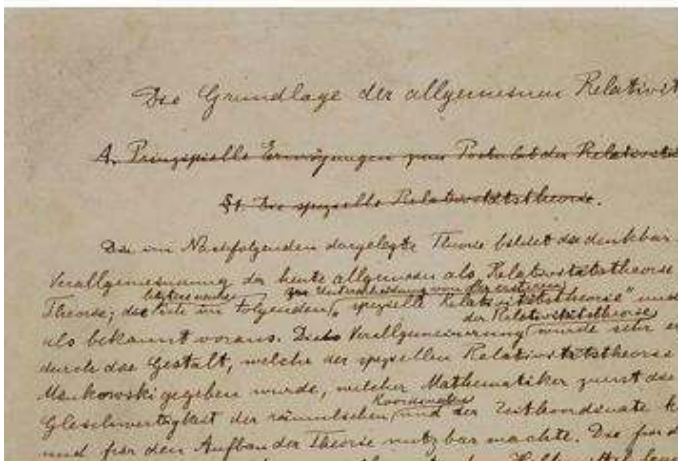 Die Grundlage der allgemeinen Relativit
A. Prinzipielle Erwägungen zum Postulat der Relativitä
§1. Die spezielle Relativitätstheorie.
Die im Nachfolgenden dargelegte Theorie bildet die denkbar
Verallgemeinerung der heute allgemein als "Relativitätstheorie
letztere zur Unterscheidung von der ersteren
Theorie; die im Folgenden "spezielle Relativitätstheorie" und
der Relativitätstheorie
als bekannt voraus. Die Verallgemeinerung wurde sehr er
durch die Gestalt, welche der speziellen Relativitätstheorie
Minkowski gegeben wurde, welcher Mathematiker zuerst die
Koordinaten
Gleichwertigkeit der räumlichen und der Zeitkoordinate k
und für den Aufbau der Theorie nutzbar machte. Die für d